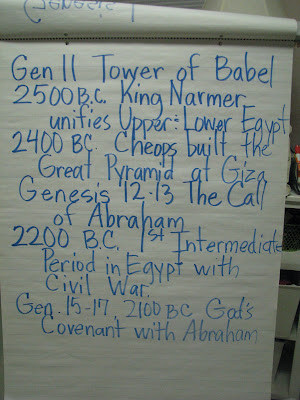 Gen 11 Tower of Babel
2500 B.C. King Narmer
unifies Upper: Lower Egypt
2400 BC. Cheops built the
Great Pyramid at Giza
Genesis 12-13 The Call
of Abraham
2200 B.C. 1st Intermediate
Period in Egypt with
Civil War.
Gen. 15-17, 2100 BC God's
Covenant with Abraham